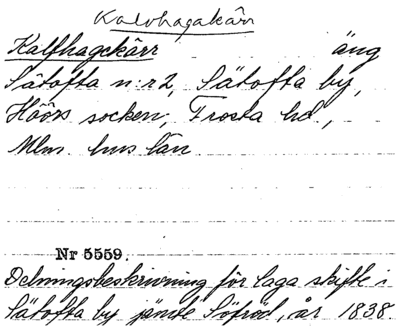 Kalvhagakärr
Kalfhagekärr äng
Sätofta n:r 2, Sätofta by,
Höörs socken, Frosta hd,
Mlm. hus län
Nr 5559.
Delningsbeskrivning för laga skifte i
Sätofta by jämte Söfröd, år 1838